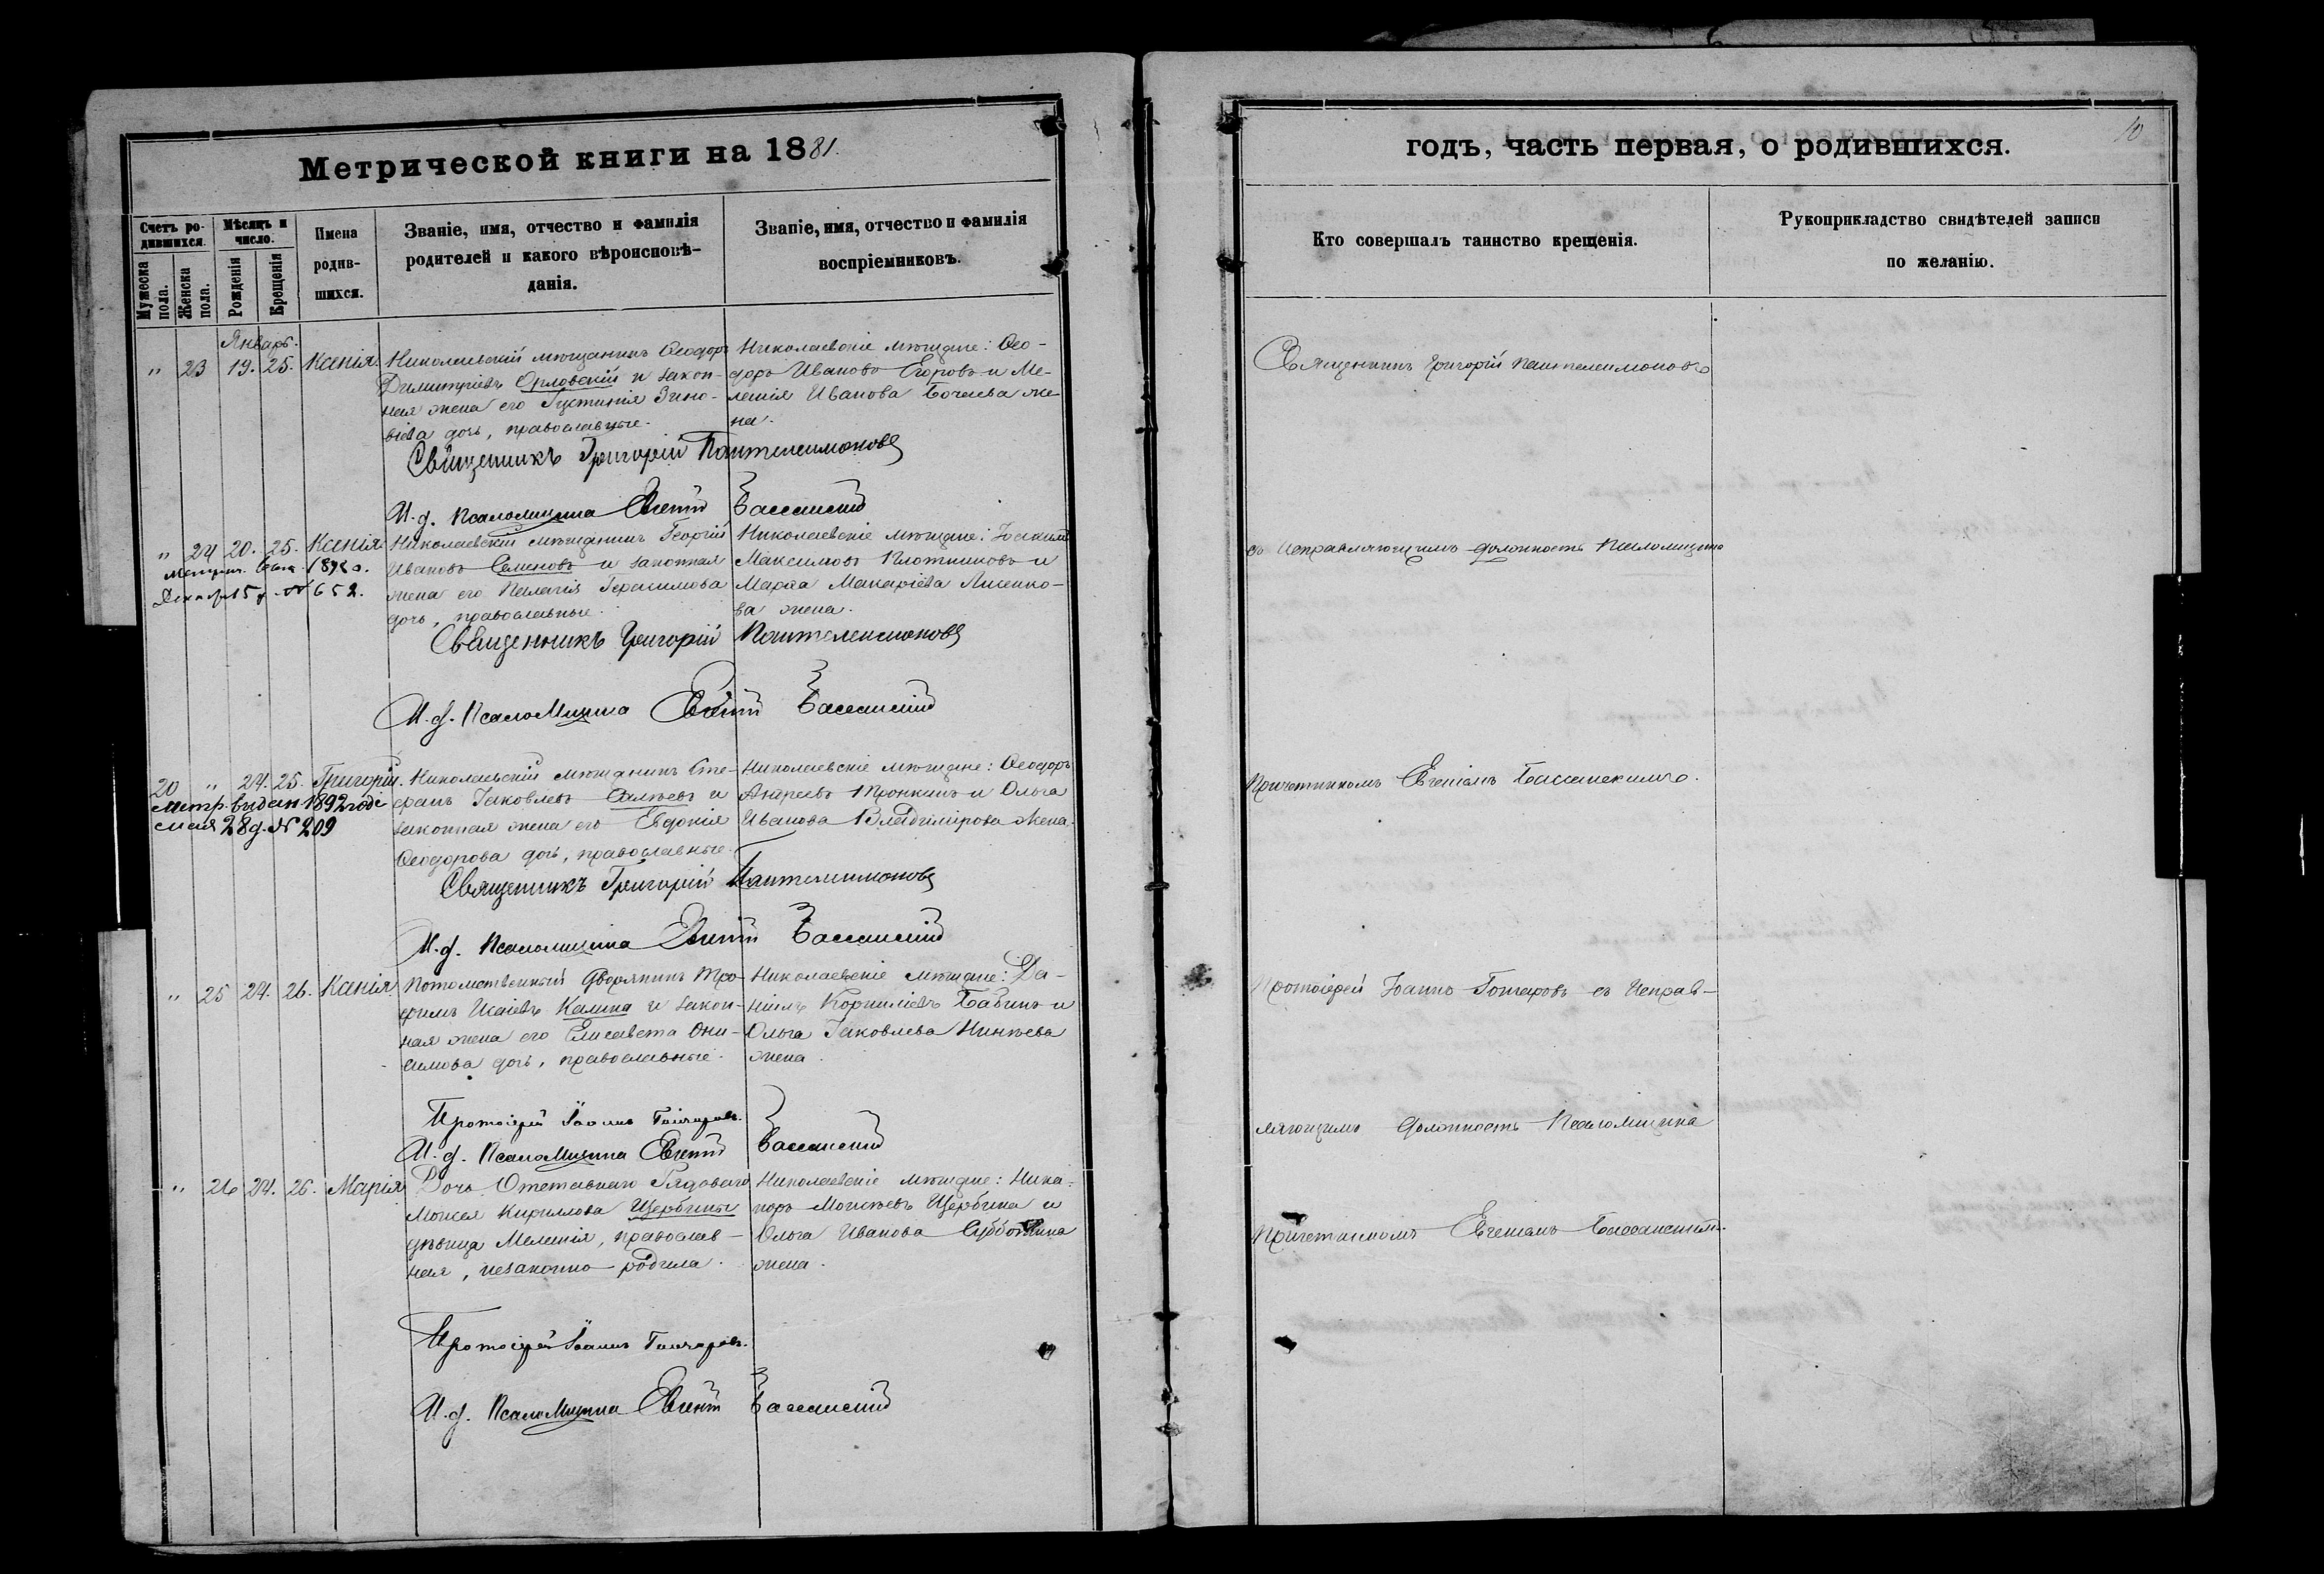 Метрической книги на 1881.
Счетъ родившихся.
Мужеска пола.
Женска пола.
Мѣсяцъ и число.
Рожденія
Крещенія
Имена родившихся.
Званіе, имя, отчество и фамилія родителей и какого вѣроисповѣданія.
Званіе, имя, отчество и фамилія воспріемниковъ.
Январь.
" 23 19. 25. Ксенія.
Николаевскій мѣщанинъ Ѳеодоръ
Димитріевъ Орловскій и закон-
ная жена его Іустинія Зино-
віева дочь, православные.
Николаевскіе мѣщане: Ѳео-
доръ Ивановъ Егоровъ и Ме-
ланія Иванова Бочаева же-
на.
Священникъ Григорій Пантелеимоновъ
И. д. Псаломщика Евгеній Бассанскій
" 24 20. 25. Ксенія
Декабря 15 д. № 652.
Николаевскій мѣщанинъ Георгій
Ивановъ Семеновъ и законная
жена его Пелагія Герасимова
дочь, православные.
Николаевскіе мѣщане: Іоакимъ
Максимовъ Плотниковъ и
Марѳа Макаріева Лисенко-
ва жена.
Священникъ Григорій Пантелеимоновъ
И. д. Псаломщика Евгеній Бассанскій
20 " 24. 25. Григорій.
метр. видан 1892 годъ
мая 28 д. № 209
Николаевскій мѣщанинъ Сте-
фанъ Іаковлевъ и
законная жена его Евдокія
Ѳеодорова дочь, православные.
Николаевскіе мѣщане: Ѳеодоръ
Андреевъ Пронкинъ и Ольга
Иванова Владимірова жена.
Священникъ Григорій Пантелеимоновъ
И. д. Псаломщика Евгеній Бассанскій
" 25 24. 26. Ксенія
Потомственный дворянинъ Тро-
фимъ Исаіевъ Калина и закон-
ная жена его Елисавета Они-
симова дочь, православные.
Николаевскіе мѣщане: Да-
ніилъ Корниліевъ Бабинъ и
Ольга Іаковлева Минѣева
жена.
Протоіерей Іоаннъ Гончаровъ.
И. д. Псаломщика Евгеній Бассанскій
" 26 24. 26. Марія
Дочь Отставнаго Рядоваго
Моисея Кириллова Щербины
дѣвица Меланія, православ-
ная, незаконно родила.
Николаевскіе мѣщане: Ника-
норъ Моисеевъ Щербина и
Ольга Иванова Субботина
жена.
Протоіерей Іоаннъ Гончаровъ.
И. д. Псаломщика Евгеній Бассанскій
годъ, часть первая, о родившихся.
10
Кто совершалъ таинство крещенія.
Рукоприкладство свидѣтелей записи по желанію.
Священникъ Григорій Пантелеимоновъ
съ Исправляющимъ должность Псаломщика
Причетникомъ Евгеніемъ Бассанскимъ.
Протоіерей Іоаннъ Гончаровъ съ Исправ-
ляющимъ должность Псаломщика
Причетникомъ Евгеніемъ Бассанскимъ.